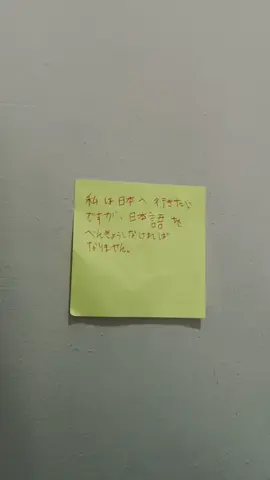 私は日本へ行きたい
ですが、日本語を
べんきょうしなければ
なりません。